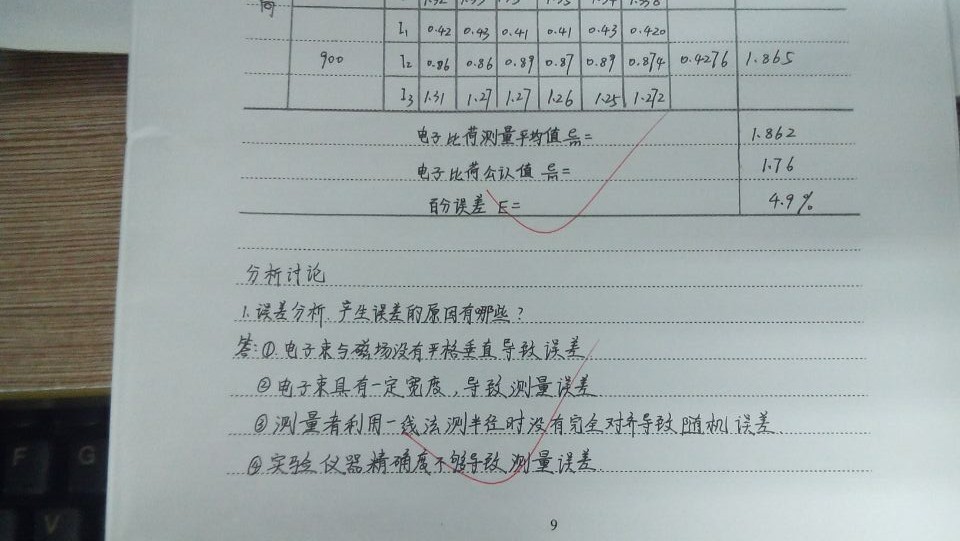 向
I₁ 0.42 0.43 0.41 0.41 0.43 0.420
900 I₂ 0.86 0.86 0.89 0.87 0.89 0.874 0.4276 1.865
I₃ 1.31 1.27 1.27 1.26 1.25 1.272
电子比荷测量平均值 e/m= 1.862
电子比荷公认值 e/m= 1.76
百分误差 E= 4.9%
分析讨论
1.误差分析.产生误差的原因有哪些?
答:①.电子束与磁场没有严格垂直导致误差
②电子束具有一定宽度,导致测量误差
③测量者利用一线法测半径时没有完全对齐导致随机误差.
④实验仪器精确度不够导致测量误差.
9
F G
V